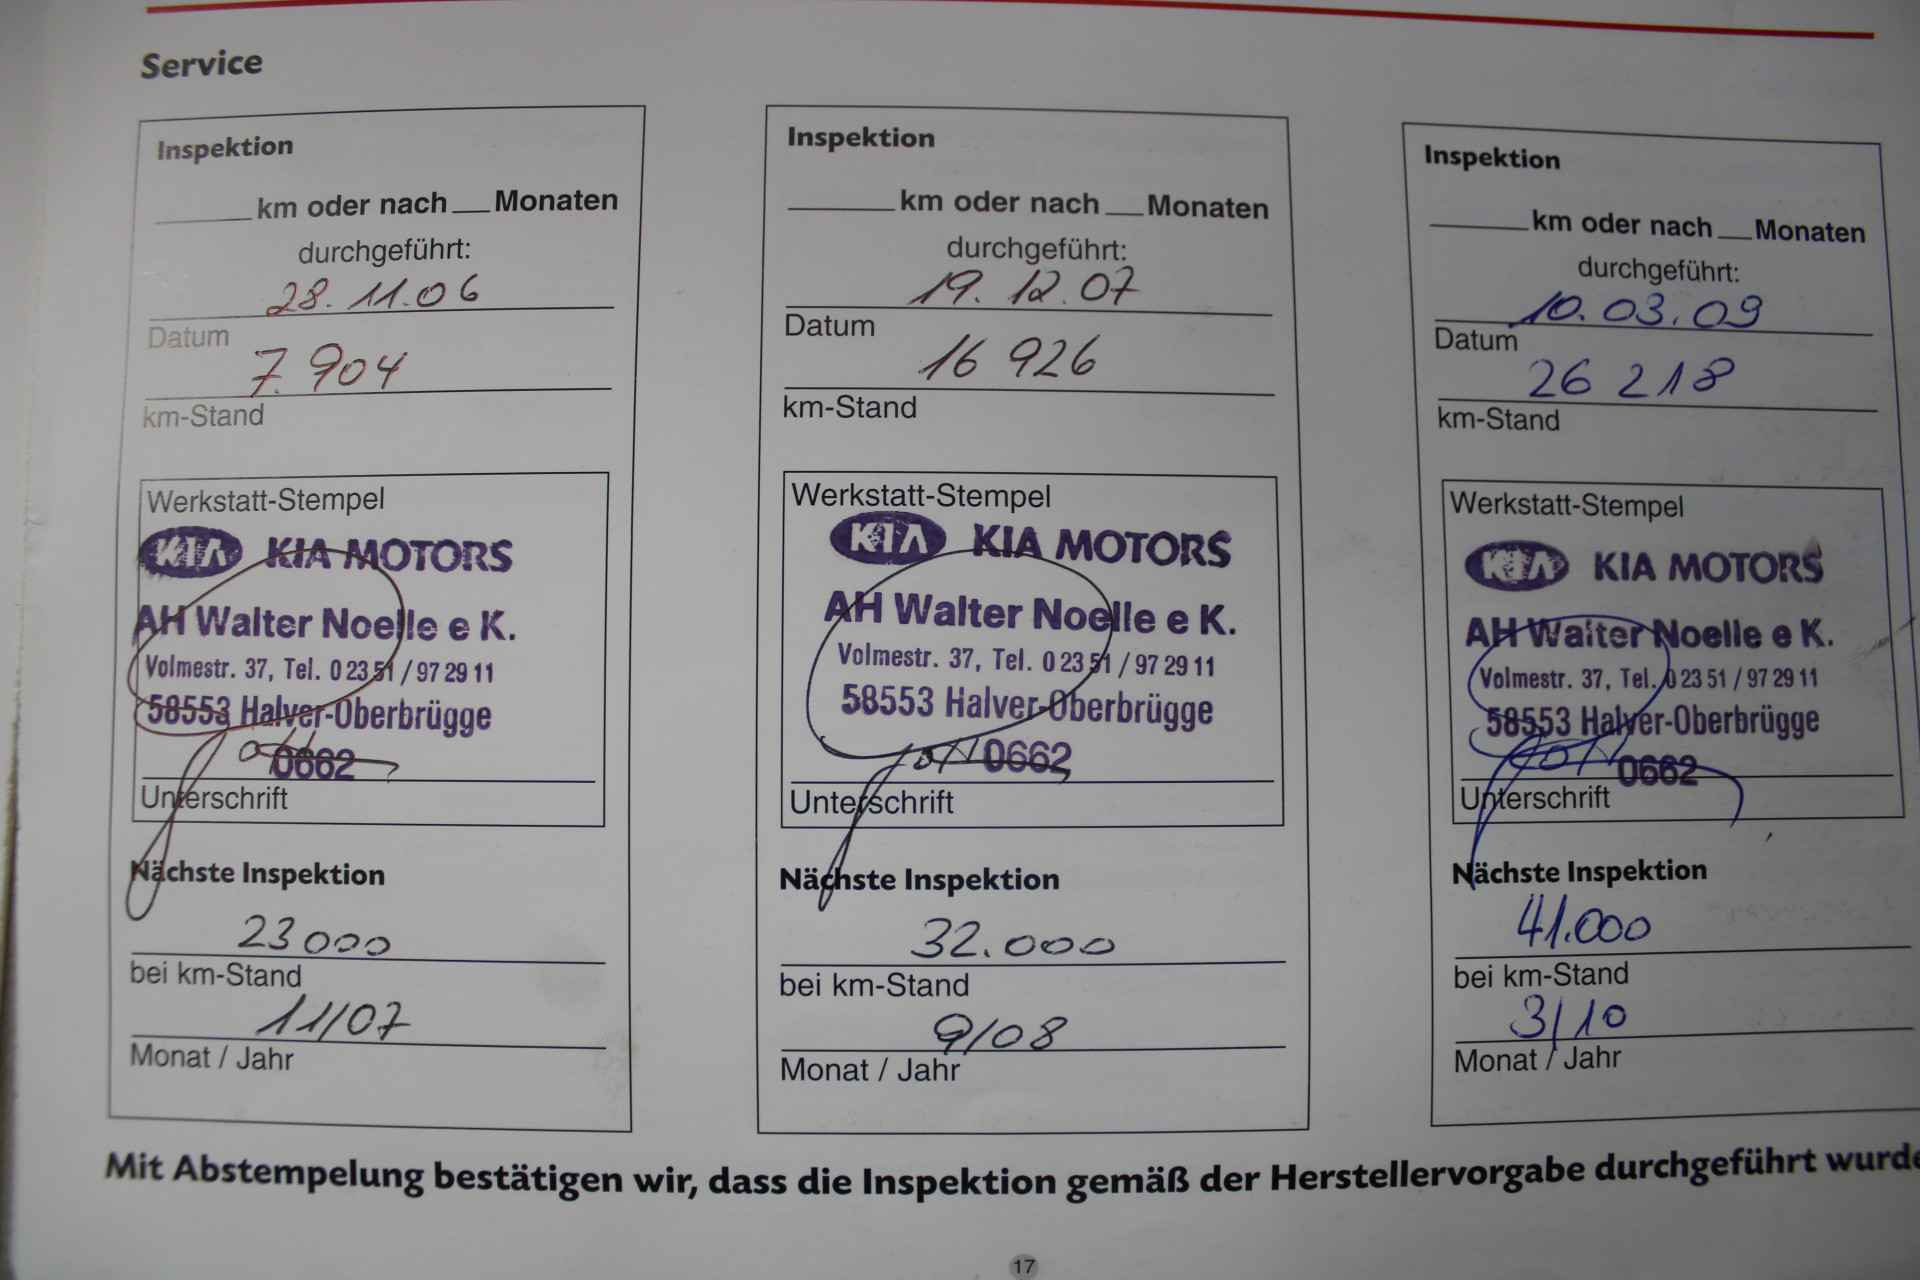 Service
Inspektion
km oder nach __ Monaten
durchgeführt:
28.11.06
Datum
7.904
km-Stand
Werkstatt-Stempel
KIA KIA MOTORS
AH Walter Noelle e K.
Volmestr. 37, Tel. 0 23 51 / 97 29 11
58553 Halver-Oberbrügge
0662
Unterschrift
Nächste Inspektion
23000
bei km-Stand
11/07
Monat / Jahr
Inspektion
km oder nach __ Monaten
durchgeführt:
19.12.07
Datum
16 926
km-Stand
Werkstatt-Stempel
KIA KIA MOTORS
AH Walter Noelle e K.
Volmestr. 37, Tel. 0 23 51 / 97 29 11
58553 Halver-Oberbrügge
0662
Unterschrift
Nächste Inspektion
32.000
bei km-Stand
9/08
Monat / Jahr
Inspektion
km oder nach __ Monaten
durchgeführt:
10.03.09
Datum
26 218
km-Stand
Werkstatt-Stempel
KIA KIA MOTORS
AH Walter Noelle e K.
Volmestr. 37, Tel. 0 23 51 / 97 29 11
58553 Halver-Oberbrügge
0662
Unterschrift
Nächste Inspektion
41.000
bei km-Stand
3/10
Monat / Jahr
Mit Abstempelung bestätigen wir, dass die Inspektion gemäß der Herstellervorgabe durchgeführt wurde
17